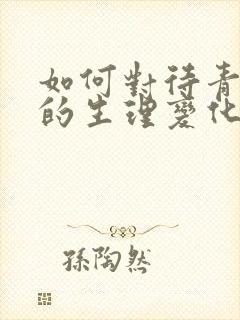 如何對待青
的生理變化
孫陶然